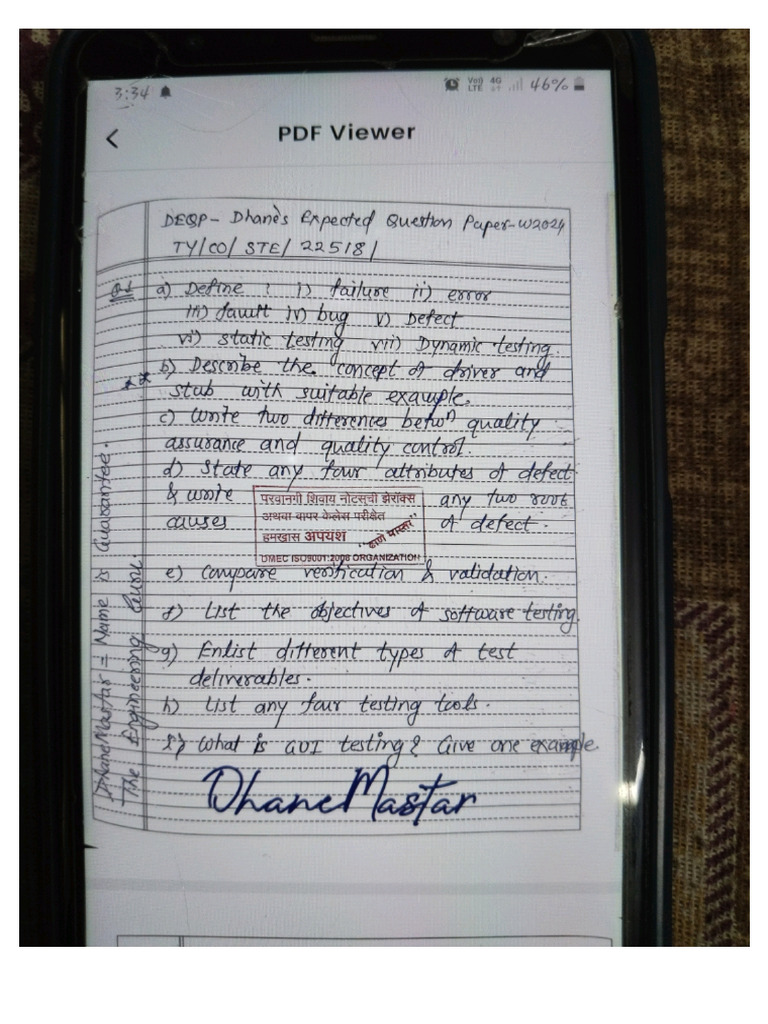 3:34 Vo) LTE 4G 46%
PDF Viewer
DEQP- Dhane's Expected Question Paper-W2024
TY/CO/ STE/ 22518/
Q.1 a) Define : i) failure ii) error
iii) fault iv) bug v) Defect
vi) static testing vii) Dynamic testing
** b) Describe the concept of driver and
stub with suitable example.
c) Write two differences betwn quality
assurance and quality control.
d) State any four attributes of defect
& write any two root
causes of defect.
परवानगी शिवाय नोटसची झेरॉक्स
अथवा वापर केलेस परीक्षेत
हमखास अपयश "ढाणे मास्तर"
DMEC ISO9001:2008 ORGANIZATION
e) Compare verification & validation.
f) List the objectives of software testing.
g) Enlist different types of test
deliverables.
h) List any four testing tools.
i) What is GUI testing? Give one example
DhaneMastar
DhaneMastar = Name is Guarantee.
The Engineering Guru.